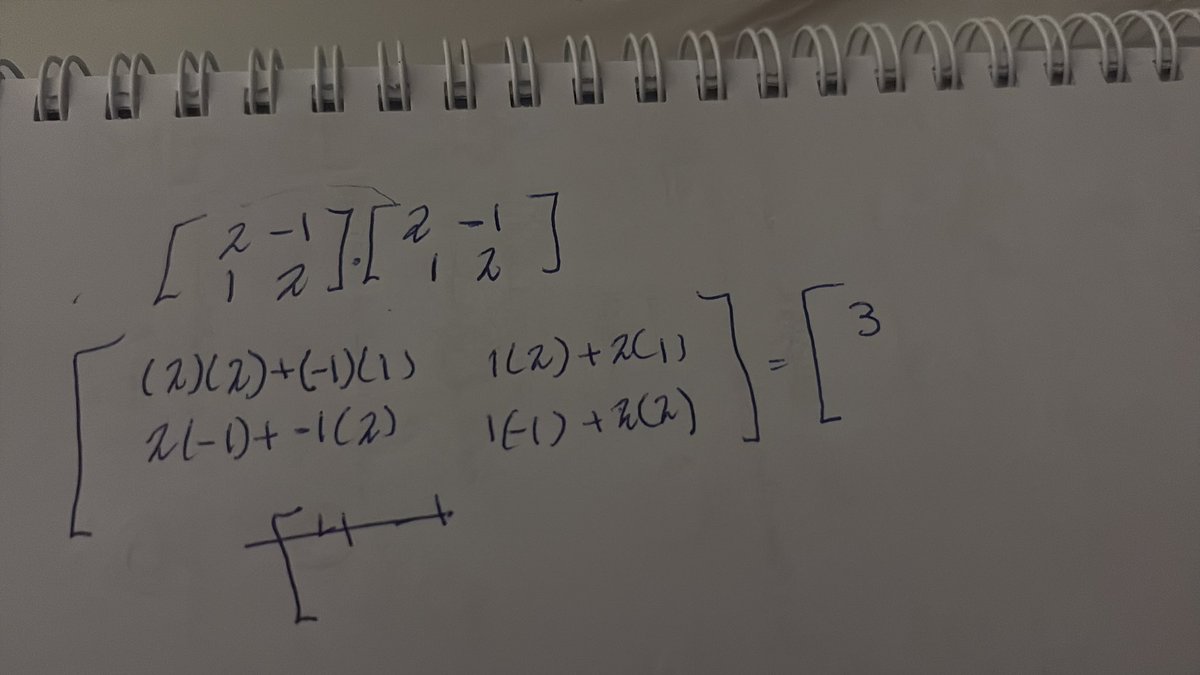 [ 2 -1 ] . [ 2 -1 ]
[ 1 2 ] [ 1 2 ]
[ (2)(2)+(-1)(1) 1(2)+2(1) ] = [ 3
2(-1)+-1(2) 1(-1)+2(2)